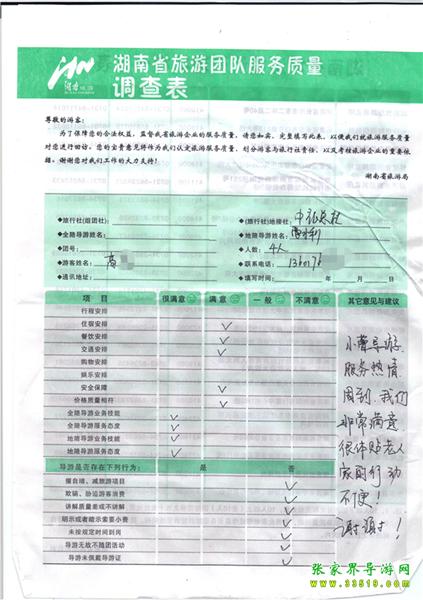 湖南省旅游团队服务质量
调查表
尊敬的游客:
为了保障您的合法权益,监督我省旅游企业的服务质量,请您如实、完整填写此表,以便我们就旅游服务质量
对您进行回访。您的宝贵意见将作为我们认定旅游服务质量、划分游客与旅行社责任,以及考核旅游企业的重要依
据。谢谢您对我们工作的大力支持!
湖南省旅游局
◆旅行社(组团社): ◆(旅行社)地接社:
◆全陪导游姓名: ◆地陪导游姓名:
◆团号: ◆人数: 4人
◆游客姓名: ◆联系电话: 136017
◆通讯地址: ◆填写时间: 年 月 日
项 目 很满意 满意 一般 不满意 其它意见与建议
行程安排
住宿安排 ✓
餐饮安排 ✓
交通安排 ✓
购物安排
娱乐安排
安全保障 ✓
价格质量相符 ✓
全陪导游业务技能 ✓
全陪导游服务态度 ✓
地陪导游业务技能 ✓
地陪导游服务态度 ✓
导游是否存在下列行为: 是 否
擅自增、减旅游项目 ✓
欺骗、胁迫游客消费 ✓
讲解质量差或不讲解 ✓
明示或者暗示索要小费 ✓
未按规定时间到岗 ✓
导游无故不随团活动 ✓
导游未佩戴导游证 ✓
小曹导游
服务热情
周到.我们
非常满意
很体贴老人
家因行动
不便!
谢谢!
张家界导游网
www.33519.com